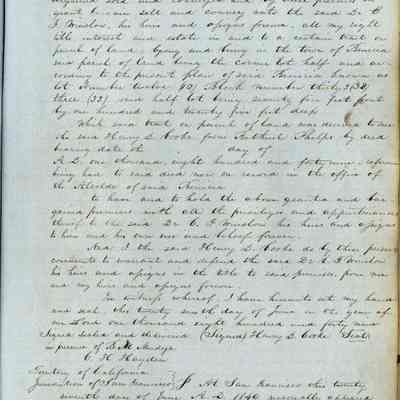 grant bargain sell and convey unto the said Dr. C
F Winslow, his heirs and assigns forever, all my right
title interest and estate in and to a certain tract or
parcel of land, lying and being in the town of Benicia
said parcel of land being the corner lot half and ac-
cording to the present plan of said Benicia known as
lot Number twelve 12) Block number thirty
three (33) said half lot being seventy five feet front
by one hundred and twenty five feet deep.
Which said tract or parcel of land was deeded to me
the said Henry D. Cooke from Bethuel Phelps by deed
bearing date the day of
A D. one thousand, eight hundred and forty nine, reference
being had to said deed now on record in the office of
the Alcalde of said Benicia
to have and to hold the above granted and bar-
gained premises with all the privileges and appurtenances
thereof to the said Dr C. F Winslow his heirs and assigns
to him and his own use and behoof forever.
And I the said Henry D. Cooke do by these presents
covenants to warrant and defend the said Dr C. F Winslow
his heirs and assigns in the title to said premises from me
and my heirs and assigns forever.
In witness whereof, I have hereunto set my hand
and seal, this twenty ninth day of June in the year of
our Lord one thousand eight hundred and forty nine
Signed sealed and delivered (Signed) Henry D. Cooke Seal
in presence of
C. H. Hayden
Territory of California
Jurisdiction of San Francisco } At San Francisco this twenty
day of June A. D. 1849 personally appeared